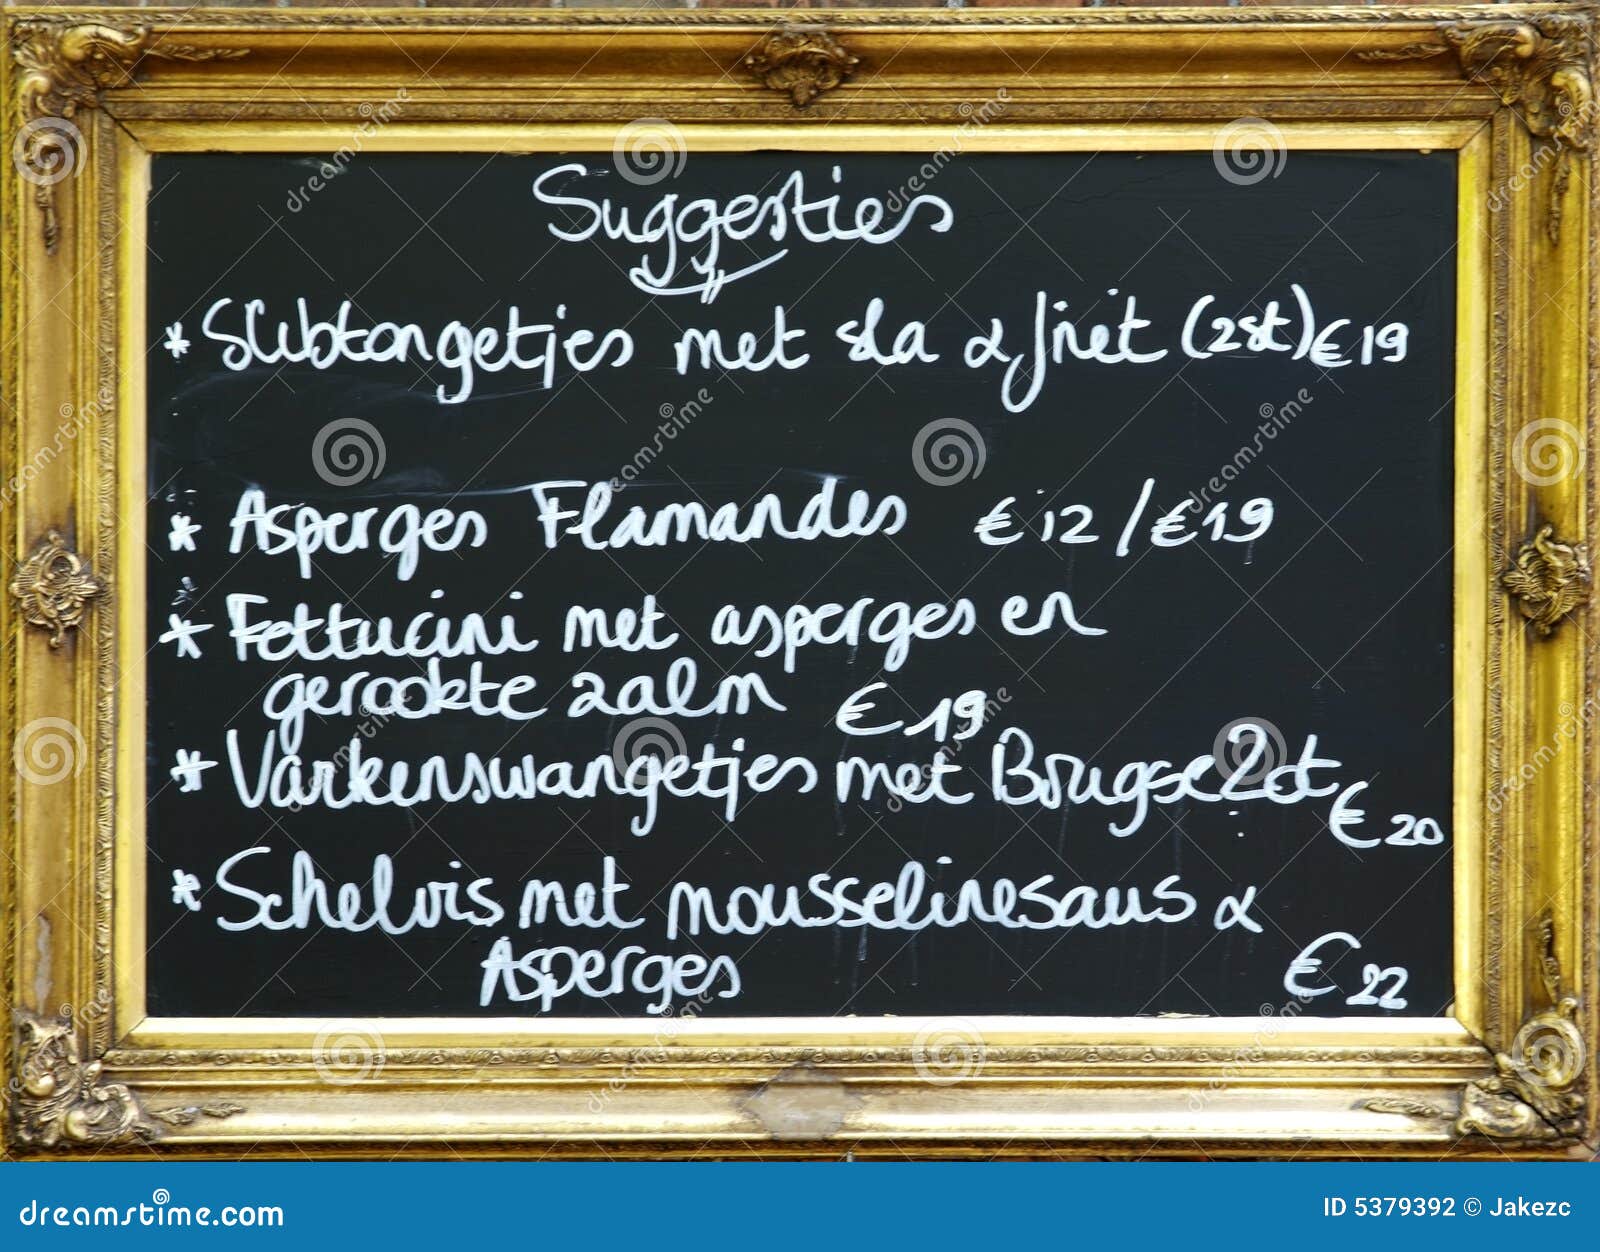 Suggesties
* Slibtongetjes met sla & friet (2st) € 19
* Asperges Flamandes € 12 / € 19
* Fettucini met asperges en
gerookte zalm € 19
* Varkenswangetjes met Brugse Zot € 20
* Schelvis met mousselinesaus &
Asperges € 22
dreamstime.com
ID 5379392 © Jakezc